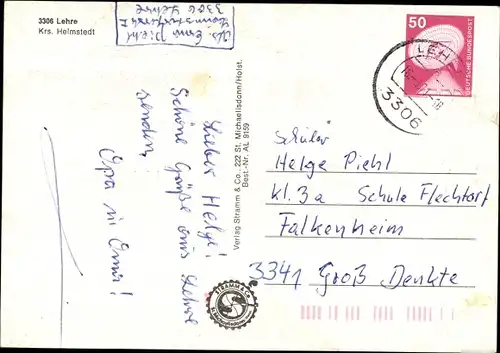 3306 Lehre
Krs. Helmstedt
3306 Lehre
50
DEUTSCHE BUNDESPOST
LEH
3306
Lieber Helge!
Schöne Grüße aus Lehre
senden
Opa u Omi!
Verlag Stramm & Co., 222 St. Michaelisdonn/Holst.
Best.-Nr. AL 9159
Schüler
Helge Piehl
kl. 3a Schule Flechtorf
Falkenheim
3341 Groß Denkte
STRAMM & CO.